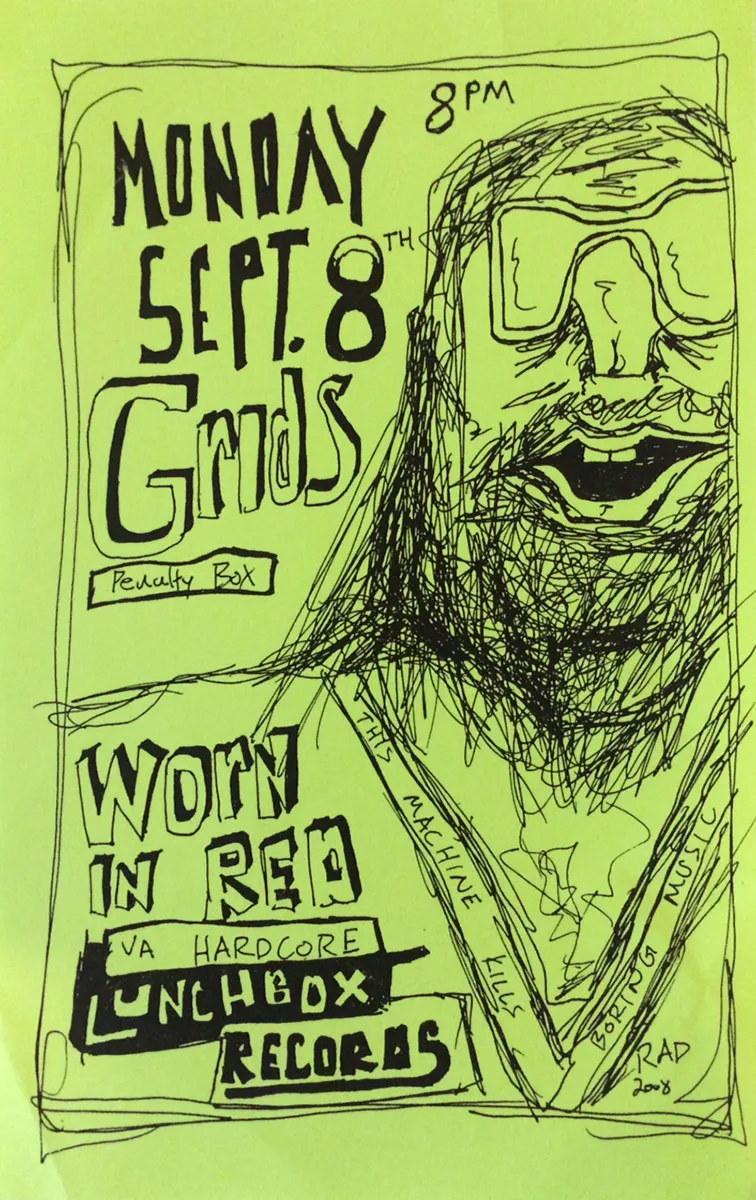 8 PM
MONDAY
SEPT. 8TH
GrIdS
Penalty Box
WOrN
IN RED
VA HARDCORE
LUNCHBOX
RECORDS
THIS MACHINE KILLS
BORING MUSIC
RAD
2008